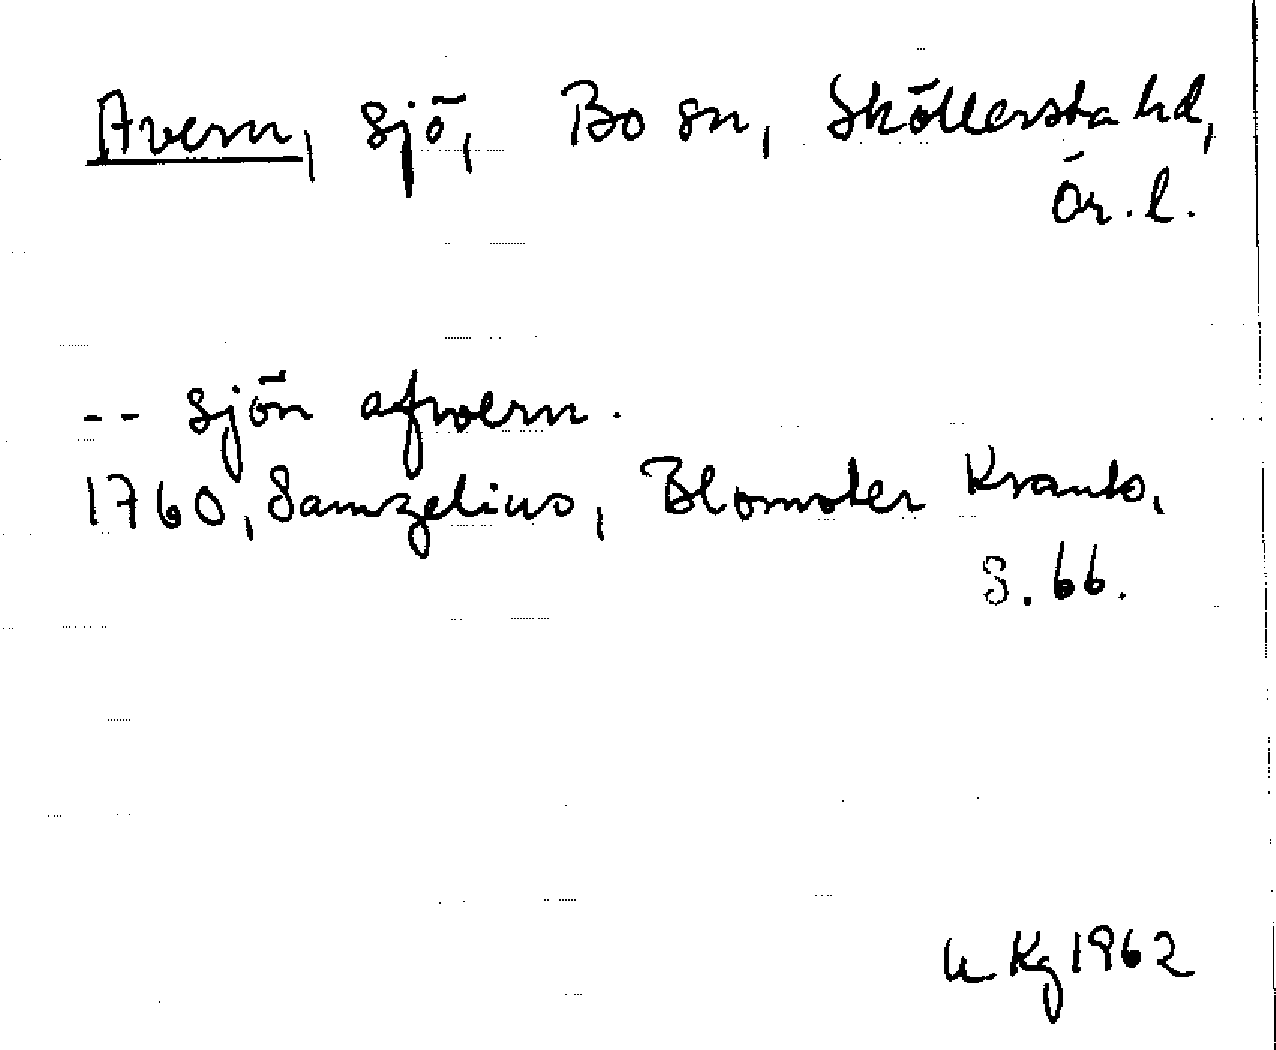 Avern, sjö, Bo sn, Sköllersta hd,
Ör. l.
-- sjön afwern.
1760, Samzelius, Blomster Krants,
S. 66.
Kg 1962